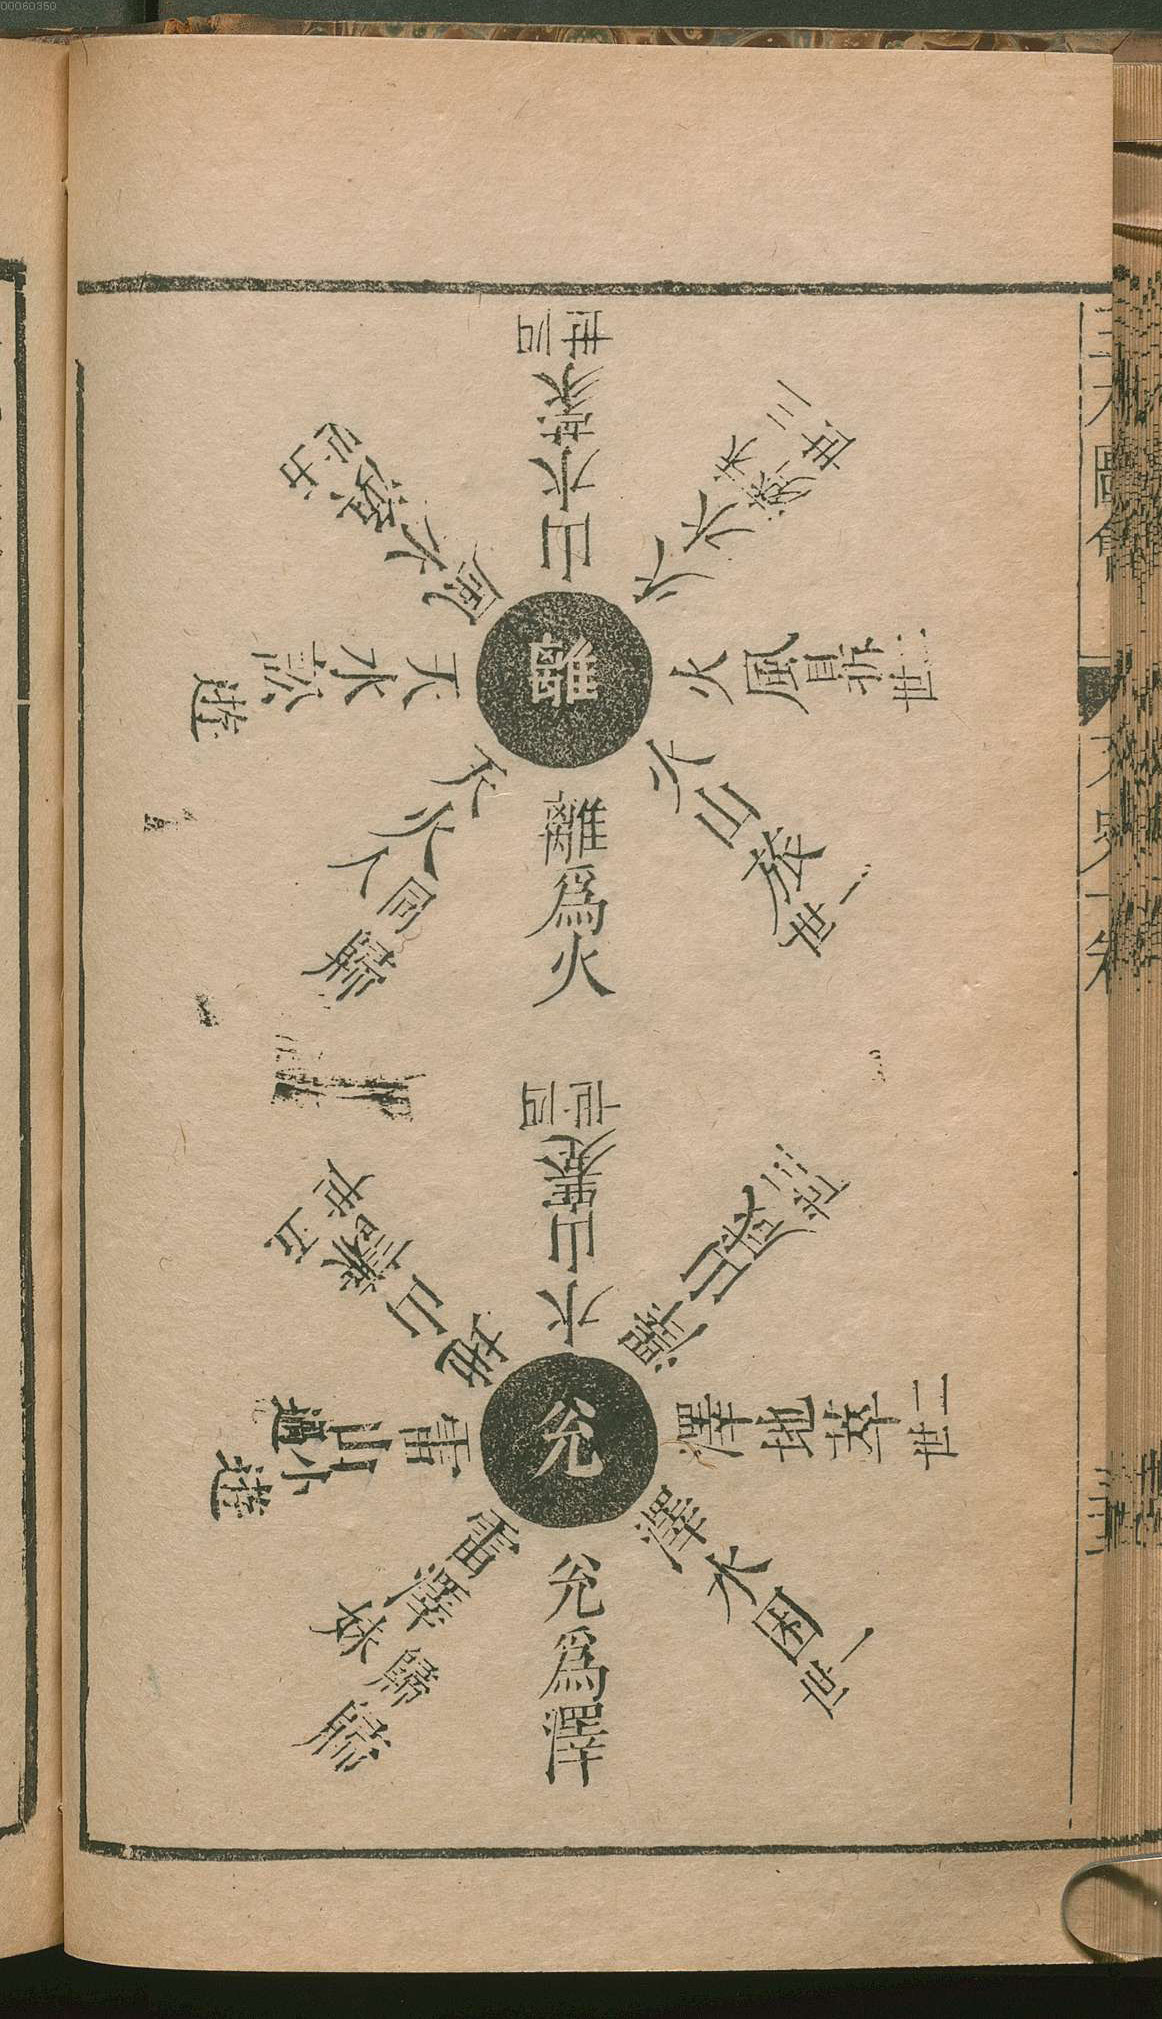 00060350
離
離為火
火山旅
一世
火風鼎
二世
火水未濟
三世
山水蒙
四世
風水渙
五世
天水訟
遊
天火同人
歸
兌
兌為澤
澤水困
一世
澤地萃
二世
澤山咸
三世
水山蹇
四世
地山謙
五世
雷山小過
遊
雷澤歸妹
歸